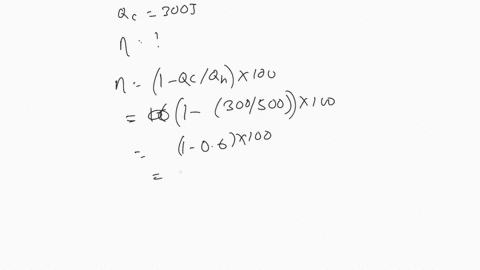 Qc = 300J
η = ?
η = (1 - Qc/Qh) × 100
= (1 - (300/500)) × 100
= (1 - 0.6) × 100
=